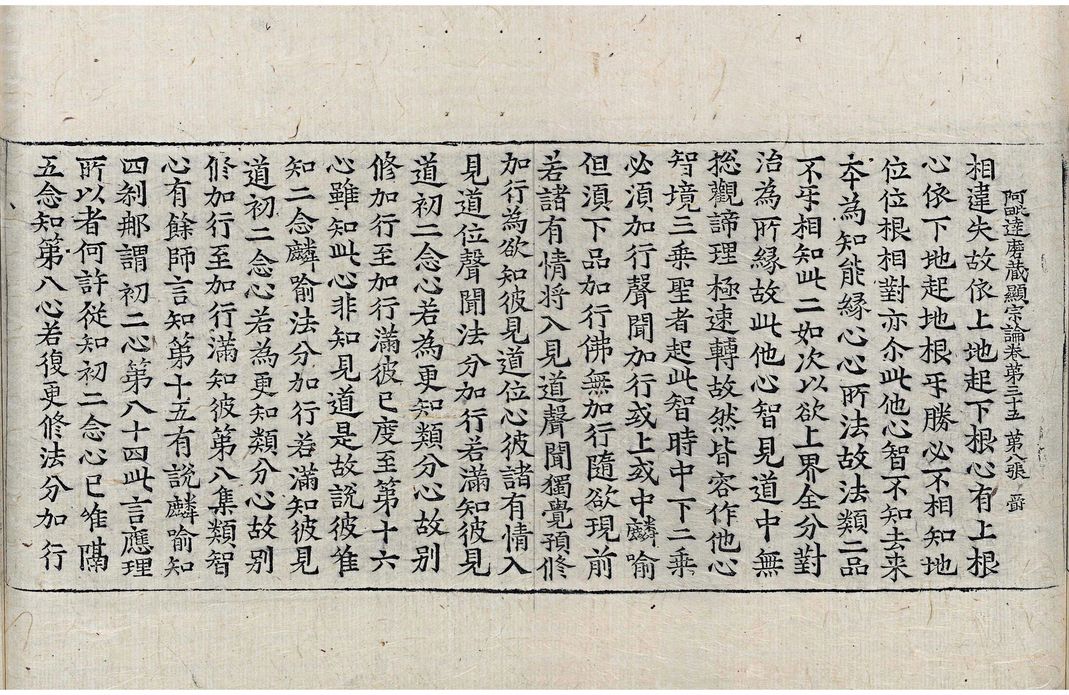 阿毗達磨藏顯宗論卷第三十五 第八張 爵
相違失故依上地起下根心有上根
心依下地起地根㸦勝必不相知地
位位根相對亦尒此他心智不知去来
夲為知能緣心心所法故法類二品
不㸦相知此二如次以欲上界全分對
治為所緣故此他心智見道中無
揔觀諦理極速轉故然皆容作他心
智境三乘聖者起此智時中下二乗
必湏加行聲聞加行或上或中麟喻
但湏下品加行佛無加行隨欲現前
若諸有情將入見道聲聞獨覺預修
加行為欲知彼見道位心彼諸有情入
見道位聲聞法分加行若滿知彼見
道初二念心若為更知類分心故別
修加行至加行滿彼已度至第十六
心雖知此心非知見道是故說彼唯
知二念麟喻法分加行若滿知彼見
道初二念心若為更知類分心故別
修加行至加行滿知彼第八集類智
心有餘師言知第十五有說麟喻知
四剎那謂初二心第八十四此言應理
所以者何許從知初二念心已唯隔
五念知第八心若復更修法分加行